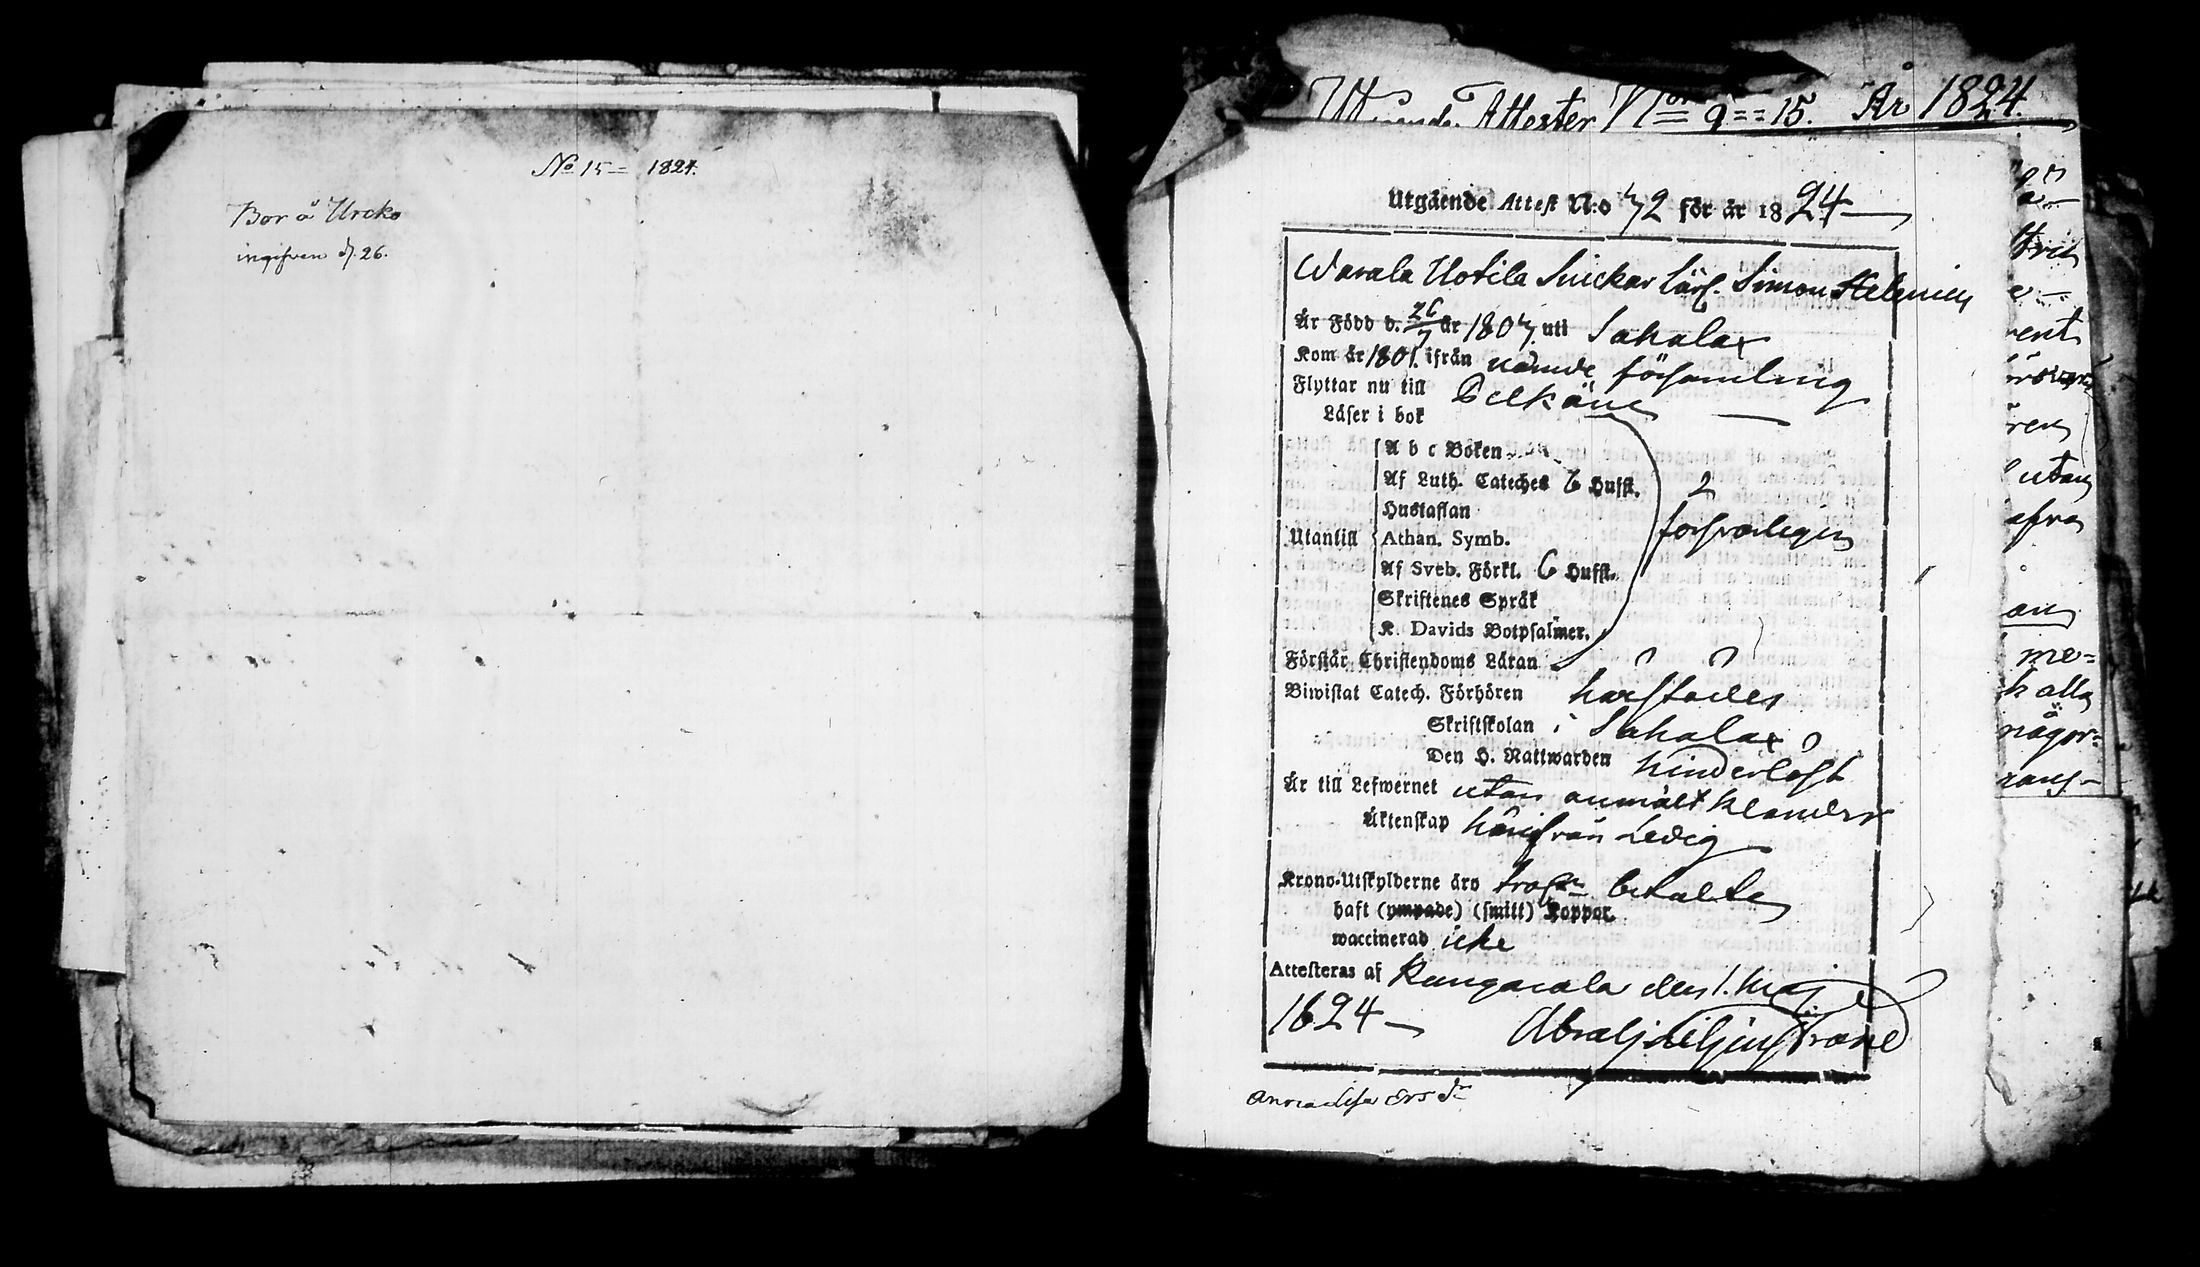 No 15 = 1824.
Bor å Urcko
ingifven d. 26.
Attester N:ris 9 == 15. År 1824.
Utgående Attest N:o 72 för år 1824
Warala Uotila Snickar lärl. Simon Helenius
Är Född d. 26/7 år 1807. uti Sahalax
Kom år 1801. ifrån nämde församling
Flyttar nu till Pelkäne
Läser i bok
A b c Boken
Af Luth. Cateches 6 Huffst. 2
Hustaflan
Utantill Athan. Symb. försvarligen
Af Sveb. Förkl. 6 Huffst.
Skriftenes Språk
K. Davids Botpsalmer.
Förstår Christendoms Läran
Biwistat Catech. Förhören härstädes
Skriftskolan i Sahalax
Den H. Nattwarden hinderlöst
Är till Lefwernet utan anmält klander
Äktenskap härifrån Ledig
Krono-Utskylderne äro betalte
haft (ympade) (smitt) Koppor.
waccinerad icke
Attesteras af Kangasala den 1. Maj
1824
Abrah. Liljenstrand
ren
utan
afra
an
me=
h alla
någor=